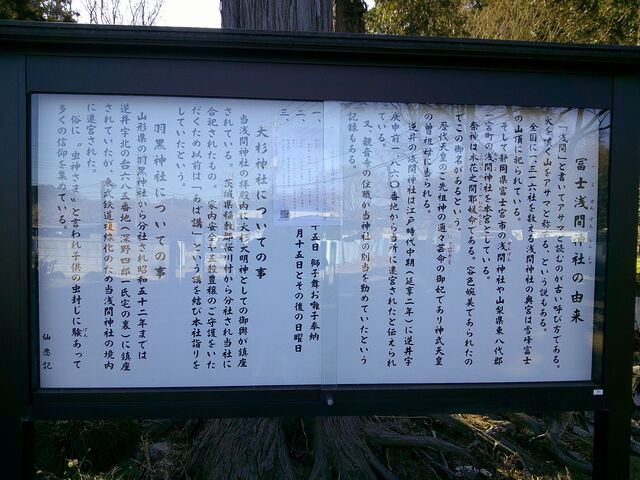 冨士浅間神社の由来
「浅間」と書いてアサマと読むのが古い呼び方である。
火を噴く山をアサマと称える、という説もある。
全国に一、三一六社を数える浅間神社の奥宮は霊峰富士
の山頂に祀られている。
そして静岡県富士宮市の浅間神社や山梨県東八代郡
宮町の浅間神社を本宮としている。
祭神は木花之開耶媛命である、容色婉美であられたの
でこの御名があるという。
歴代天皇のご先祖神の邇々芸命の御妃であり神武天皇
の曽祖社に当られる。
逆井の浅間神社は江戸時代中期(延享二年)に逆井字
庚申前一、六〇番地から当所に遷宮されたと伝えられ
ている。
又、観音寺の住職が当神社の別当を勤めていたという
記録もある。
一、
二、
三、
十五日 獅子舞お囃子奉納
月十五日とその後の日曜日
大杉神社についての事
当浅間神社の拝殿内に大杉大明神としての御輿が鎮座
されている。茨城県稲敷郡桜川村から分社され当社に
合祀されたもの。家内安全、五穀豊穣のご守護をいた
だくため以前は「あば講」という講を結び本社詣りを
していたという。
羽黒神社についての事
山形県の羽黒神社から分社され昭和五十二年までは
逆井字北の台六八五番地(深野四郎一氏宅の裏)に鎮座
されていたのを東武鉄道複線化のため当浅間神社の境内
に遷宮された。
俗に〝虫神さま〟と言われ子供の虫封じに験あって
多くの信仰を集めている。
仙悠記